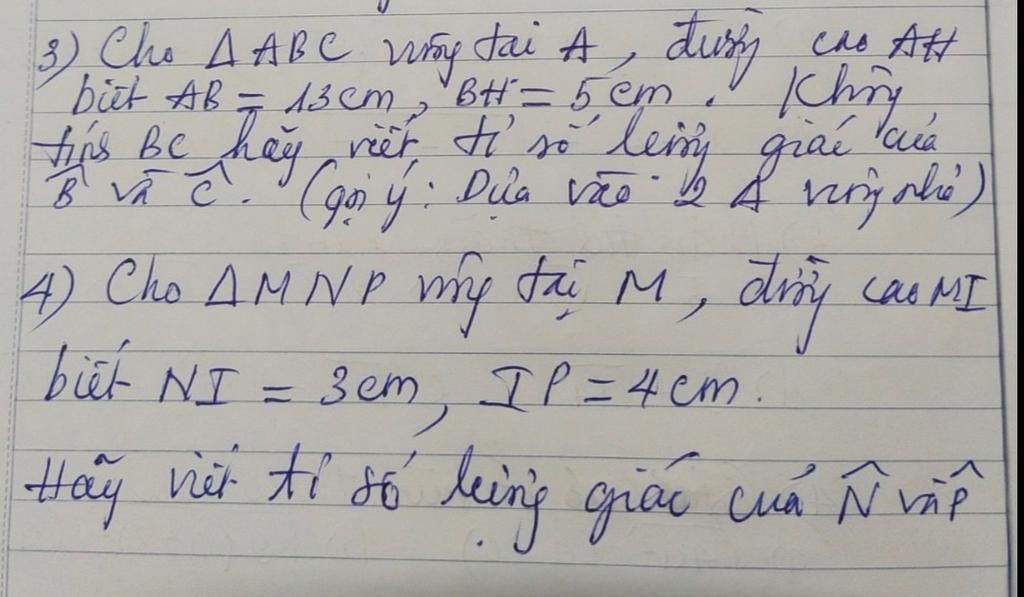 3) Cho ΔABC vuông tại A, đường cao AH
biết AB = 13cm, BH = 5cm. Không
tính BC hãy viết tỉ số lượng giác của
B̂ và Ĉ. (gợi ý: Dựa vào 2 Δ vuông nhỏ)
4) Cho ΔMNP vuông tại M, đường cao MI
biết NI = 3cm, IP = 4cm.
Hãy viết tỉ số lượng giác của N̂ và P̂